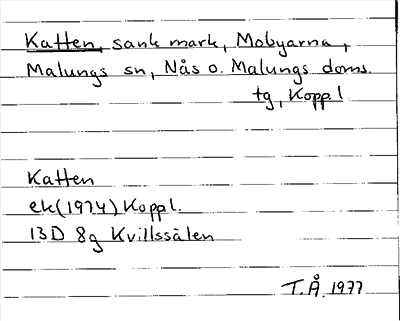 Katten, sank mark, Mobyarna,
Malungs sn, Nås o. Malungs doms.
tg, Koppl
Katten
ek(1974) Koppl.
13D 8g Kvillssälen
T.Å. 1977